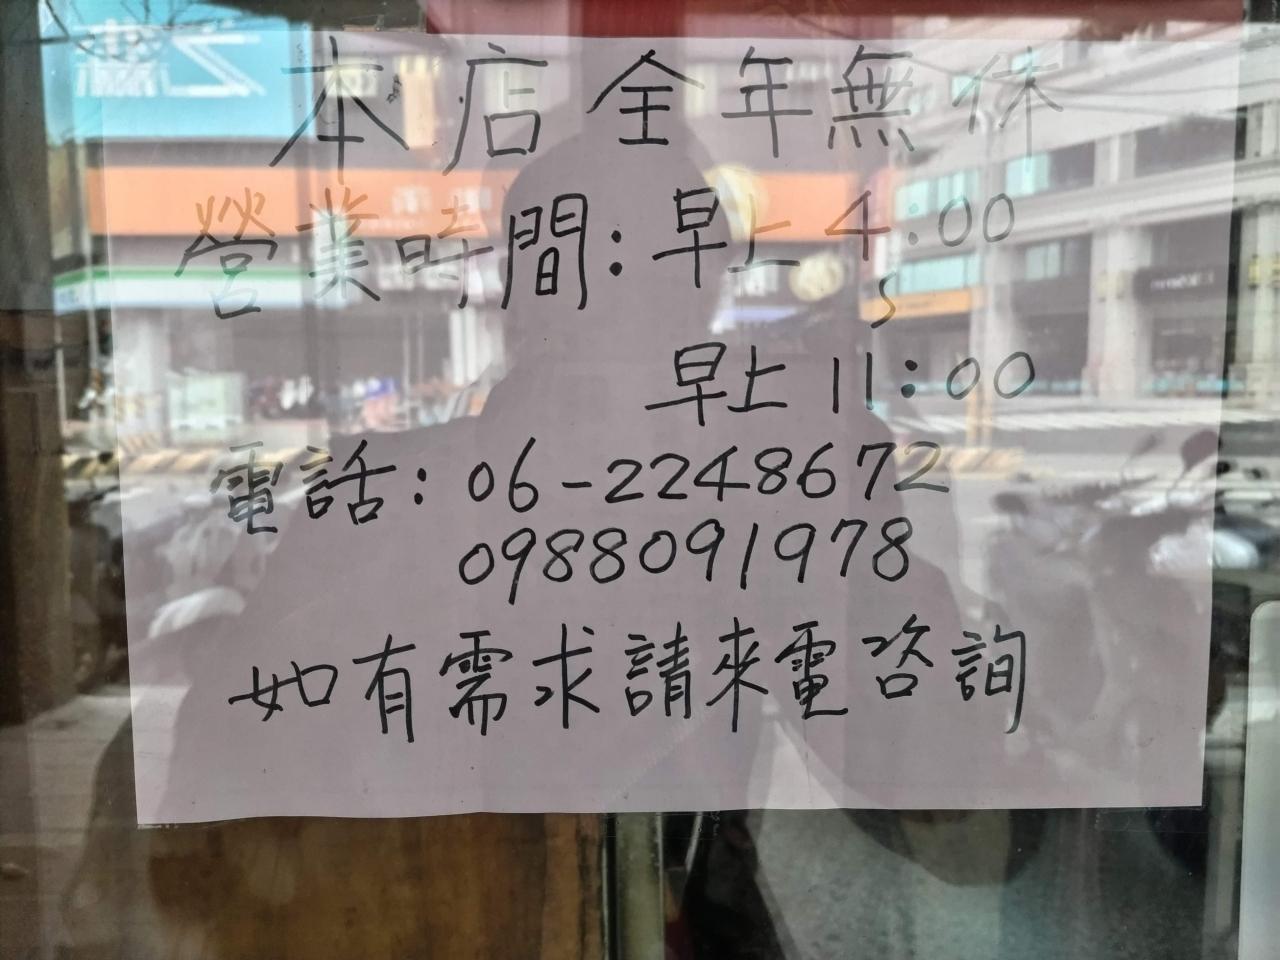 本店全年無休
營業時間:早上4:00
~
早上11:00
電話:06-2248672
0988091978
如有需求請來電咨詢